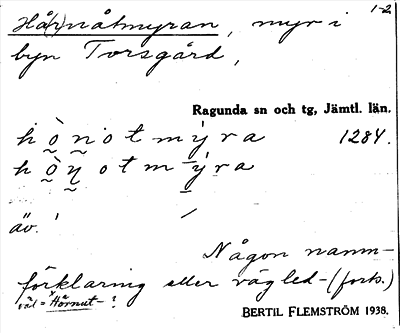 1-2
Hå(r)nåtmyran, myr i
byn Torsgård,
Ragunda sn och tg, Jämtl. län.
h ò n o t m ý r a 1284.
h ò n o t m ý r a
äv. ' /
Någon namn-
förklaring eller vägled- (forts.)
väl = *Hårnut- ?
BERTIL FLEMSTRÖM 1938.